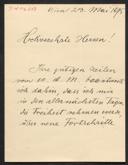 Wien 23. Mai 1895
Hochverehrte Herren!
Ihre gütigen Zeilen
vom d. M.
ich dahin, dass ich mir
in den allernächsten Tagen
die Freiheit nehmen werde,
über neue Fortschritte